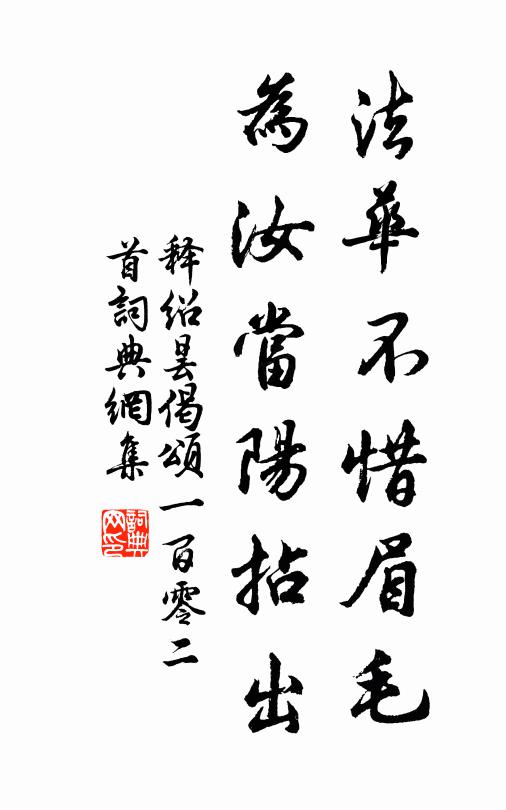 法華不惜眉毛
為汝當陽拈出
释绍曇偈頌一百零二
首詞典網集
詞典网印